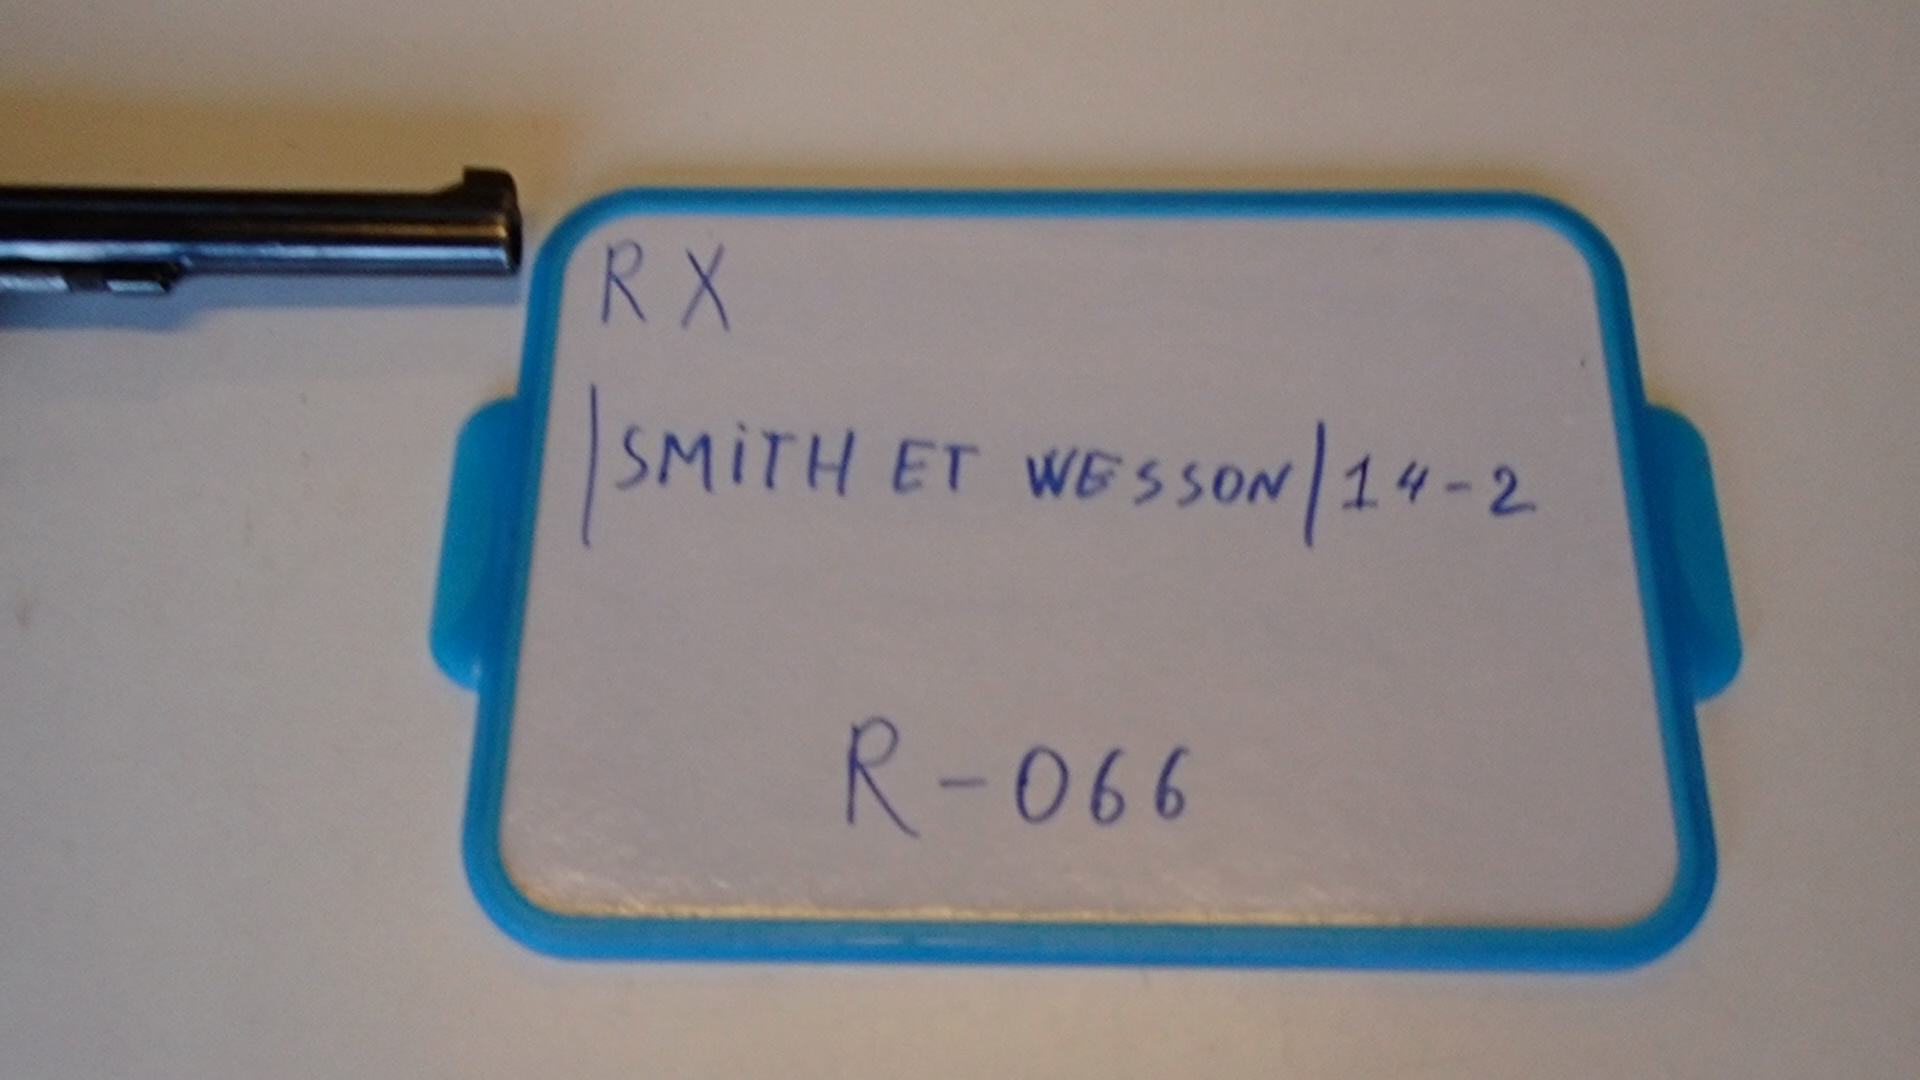 R X
|SMiTH ET WESSON|14-2
R-066